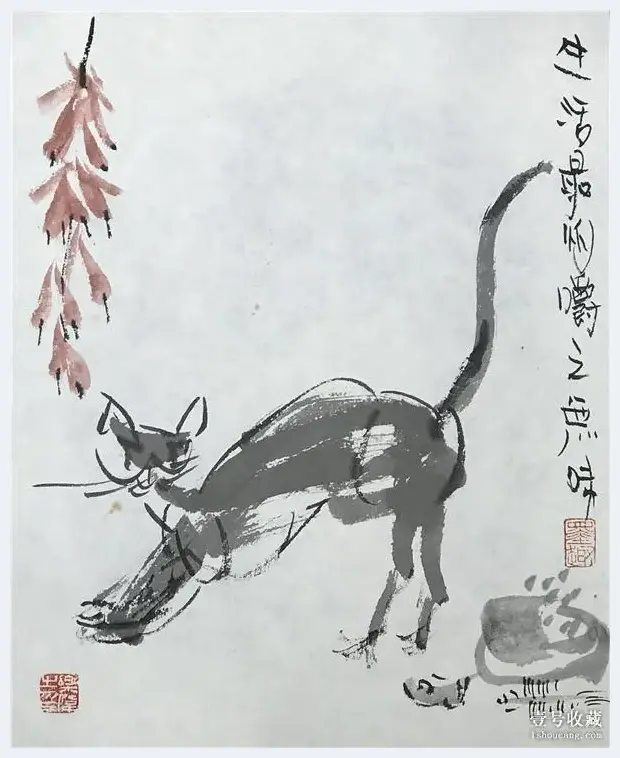 生活最怕嚼之无味
壹号收藏
1shoucang.com